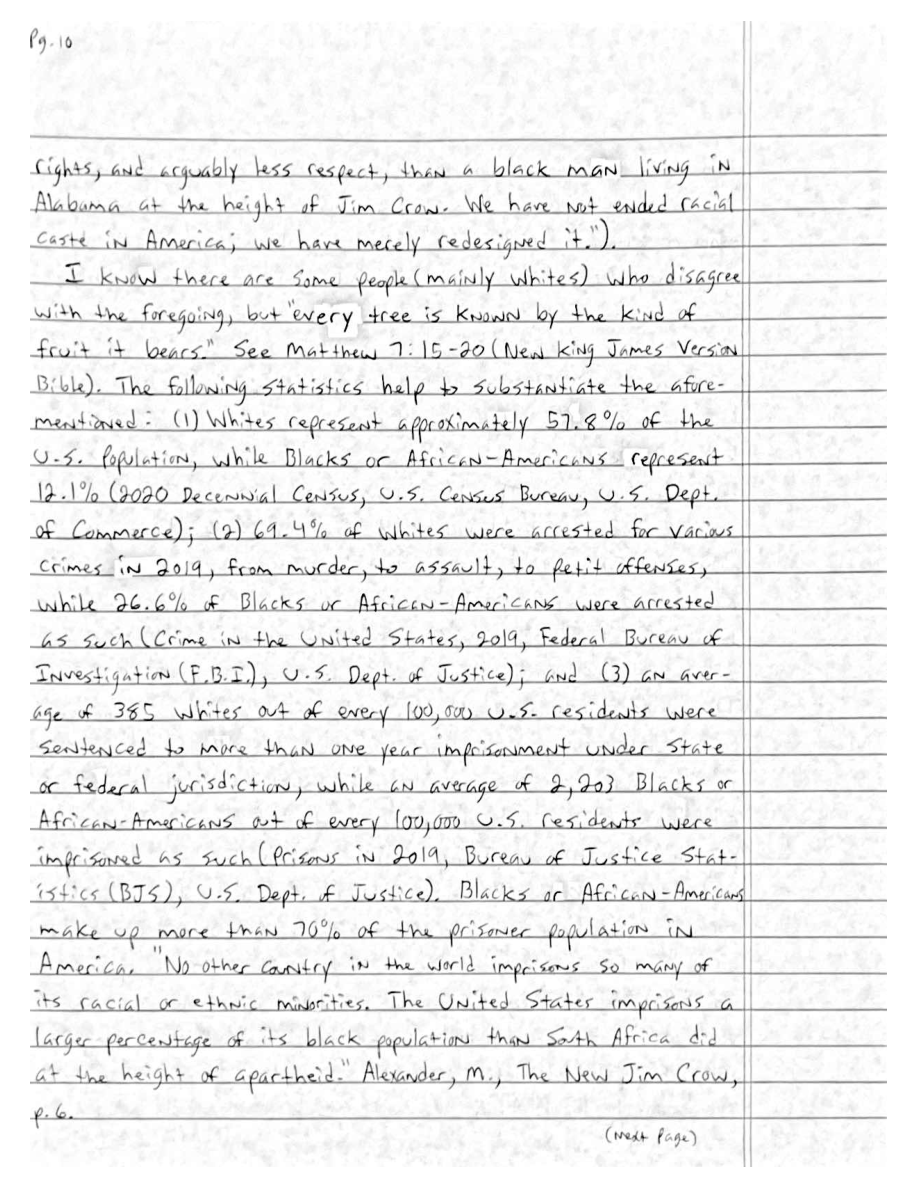 Pg. 10
rights, and arguably less respect, than a black man living in
Alabama at the height of Jim Crow. We have not ended racial
caste in America; we have merely redesigned it.").
I know there are some people (mainly whites) who disagree
with the foregoing, but "every tree is known by the kind of
fruit it bears." See Matthew 7:15-20 (New King James Version
Bible). The following statistics help to substantiate the afore-
mentioned: (1) Whites represent approximately 57.8% of the
U.S. Population, while Blacks or African-Americans represent
12.1% (2020 Decennial Census, U.S. Census Bureau, U.S. Dept.
of Commerce); (2) 69.4% of whites were arrested for various
crimes in 2019, from murder, to assault, to petit offenses,
while 26.6% of Blacks or African-Americans were arrested
as such (Crime in the United States, 2019, Federal Bureau of
Investigation (F.B.I.), U.S. Dept. of Justice); and (3) an aver-
age of 385 whites out of every 100,000 U.S. residents were
sentenced to more than one year imprisonment under state
or federal jurisdiction, while an average of 2,203 Blacks or
African-Americans out of every 100,000 U.S. residents were
imprisoned as such (Prisons in 2019, Bureau of Justice Stat-
istics (BJS), U.S. Dept. of Justice). Blacks or African-Americans
make up more than 70% of the prisoner population in
America. "No other country in the world imprisons so many of
its racial or ethnic minorities. The United States imprisons a
larger percentage of its black population than South Africa did
at the height of apartheid." Alexander, M., The New Jim Crow,
p. 6.
(Next Page)